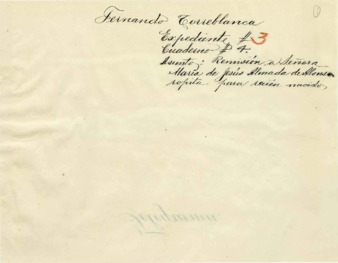 Fernando Torreblanca
Expediente # 3
Cuaderno # 4.
Asunto: Remisión a Señora
María de Jesús Almada de Alonso
ropita para recién nacido,